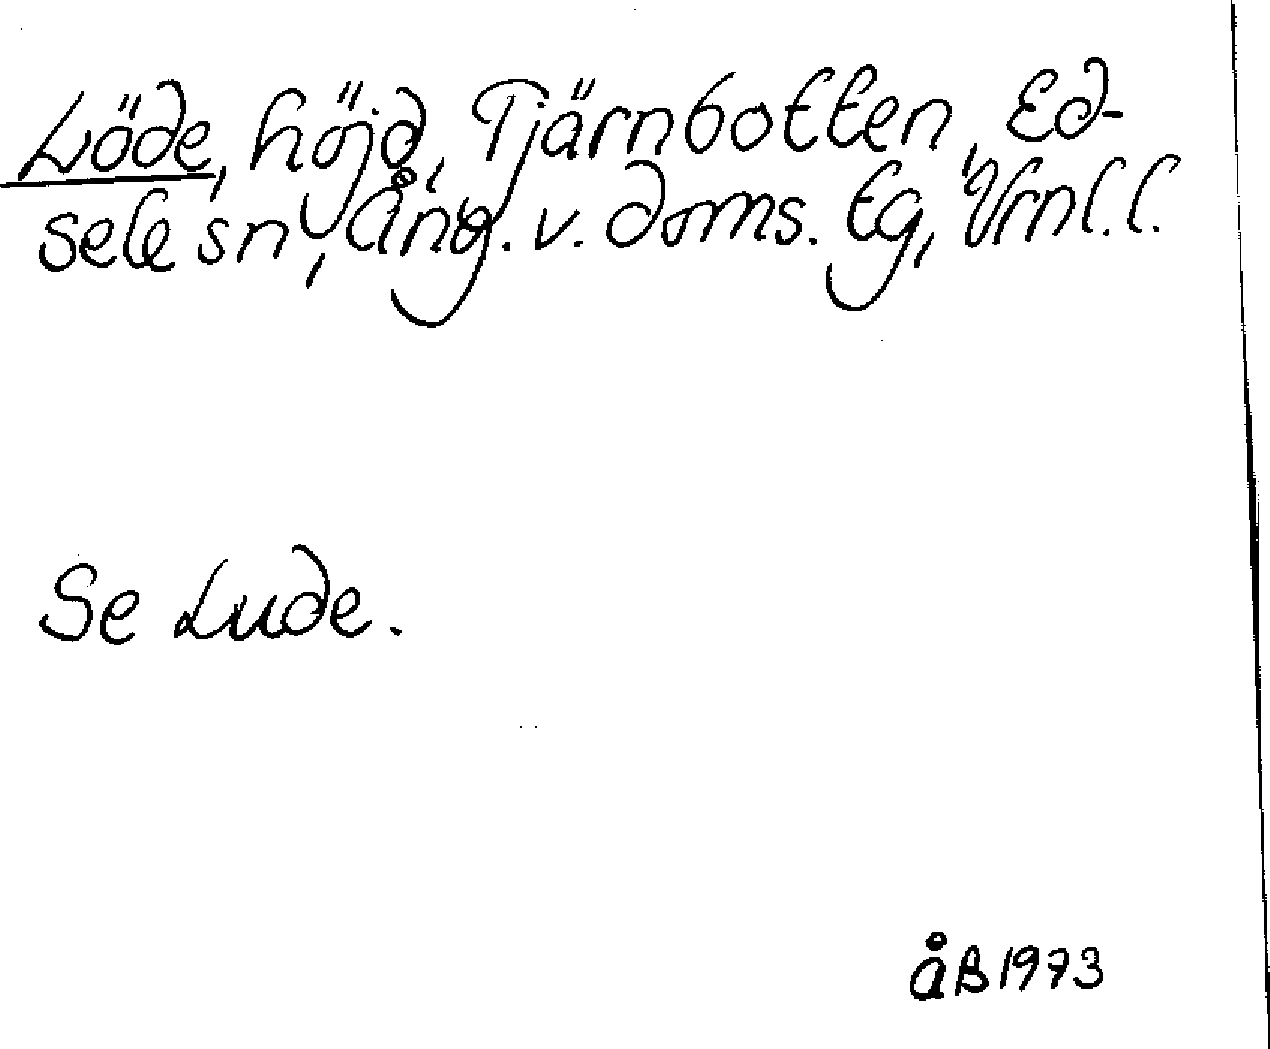 Löde, höjd, Tjärnbotten, Ed-
sele sn, Ång. v. doms. tg, Vrnl. l.
Se Lude.
åB 1973